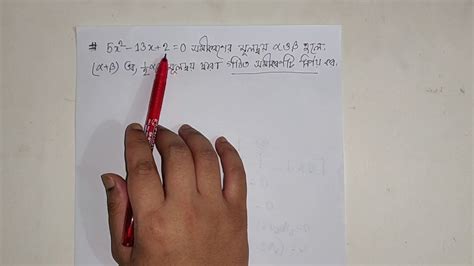 # 5x² - 13x + 2 = 0 সমীকরণের মূলদ্বয় α ও β হলে
(α+β) ও, ½α মূলদ্বয় দ্বারা গঠিত সমীকরণটি নির্ণয় কর.